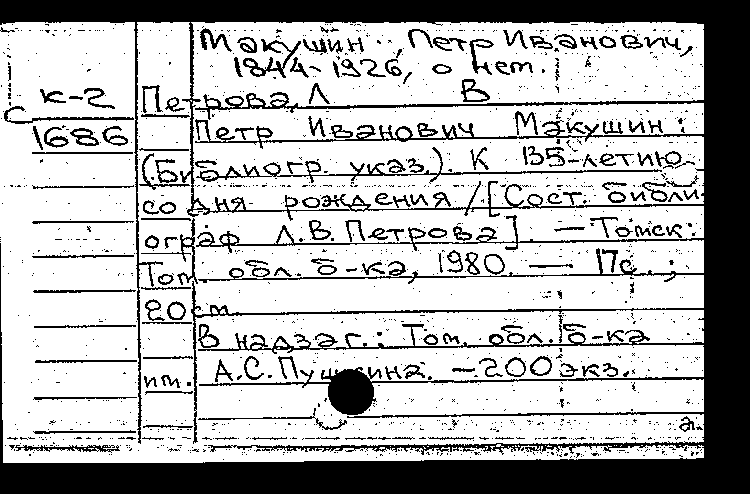 Макушин, Петр Иванович,
1844-1926, о нем.
К-2 Петрова, Л В
С
1686 Петр Иванович Макушин:
(Библиогр. указ.). К 135-летию
со дня рождения / [Сост. библи-
ограф Л.В. Петрова]. — Томск:
Том. обл. б-ка, 1980. — 17с.;
20см.
В надзаг.: Том. обл. б-ка
им. А.С. Пушкина. — 200 экз.